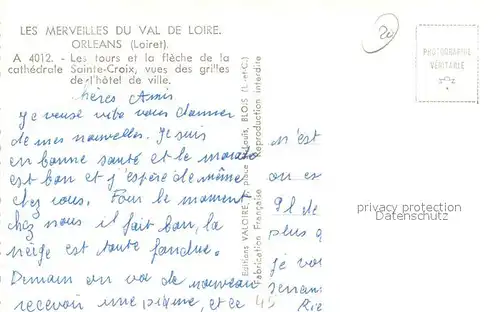 LES MERVEILLES DU VAL DE LOIRE.
ORLEANS (Loiret).
A 4012. - Les tours et la flèche de la
cathédrale Sainte-Croix, vues des grilles
de l'hôtel de ville.
20
PHOTOGRAPHIE
VÉRITABLE
chères Amis
Je veux vite vous donner
de mes nouvelles. Je suis
en bonne santé et le moral
est bon et j'espère de même
chez vous. Pour le moment
chez nous il fait bon, la
neige est toute fondue.
Demain on va de nouveau
recevoir une piqure, et ce
Editions VALOIRE, place St-Louis, BLOIS (L.-et-C.)
Fabrication Française Reproduction interdite
n'est
on es
Il de
plus
je vou
45
privacy protection
Datenschutz